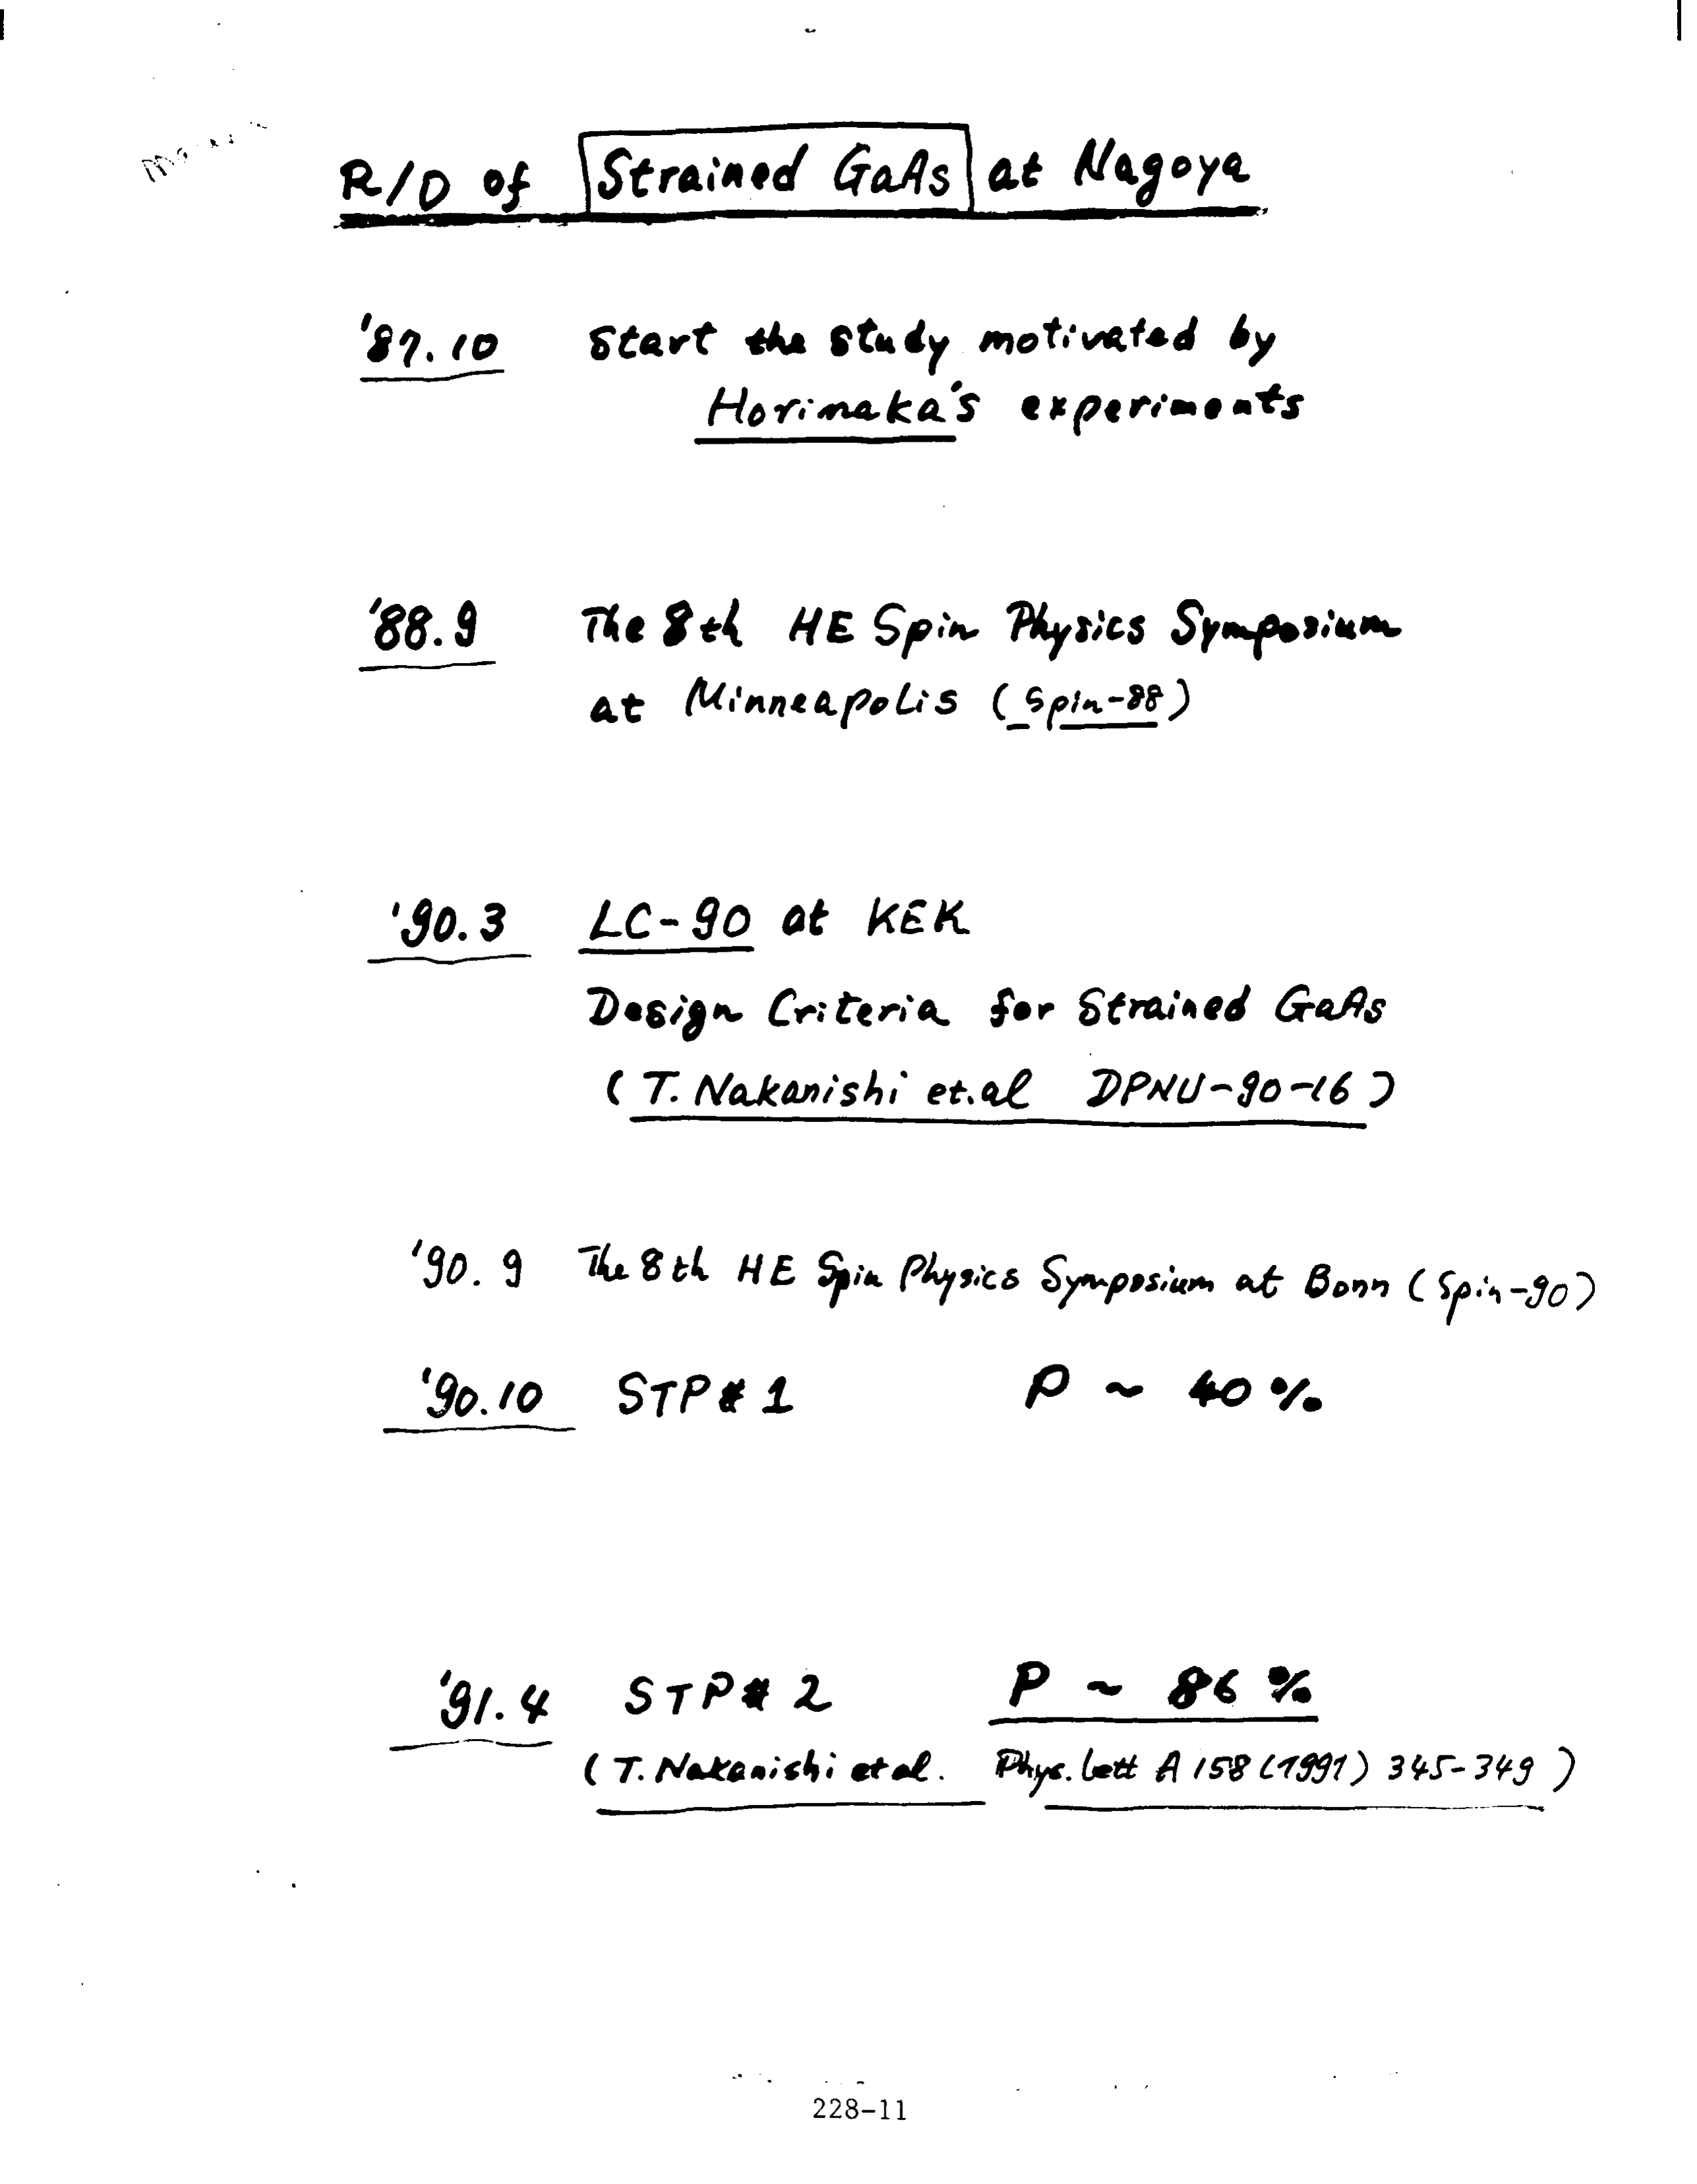 R/D of Strained GaAs at Nagoya
'87.10 Start the study motivated by
Horinaka's experiments
'88.9 The 8th HE Spin Physics Symposium
at Minneapolis (Spin-88)
'90.3 LC-90 at KEK
Design Criteria for Strained GaAs
(T. Nakanishi et.al DPNU-90-16)
'90.9 The 8th HE Spin Physics Symposium at Bonn (Spin-90)
'90.10 STP#1 P ~ 40%
'91.4 STP#2 P ~ 86%
(T. Nakanishi et al. Phys. Lett A 158 (1991) 345-349)
228-11